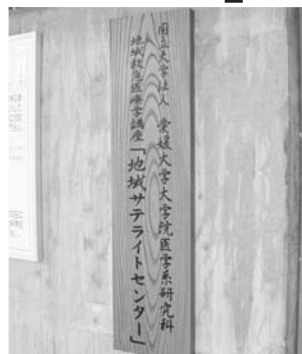 国立大学法人 愛媛大学大学院医学系研究科
地域救急医療学講座「地域サテライトセンター」